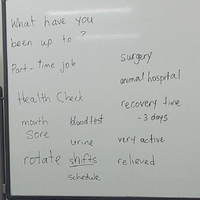 What have you
been up to?
Part-time job
Health Check
mouth sore
blood test
urine
rotate shifts
schedule
surgery
animal hospital
recovery time
- 3 days
very active
relieved